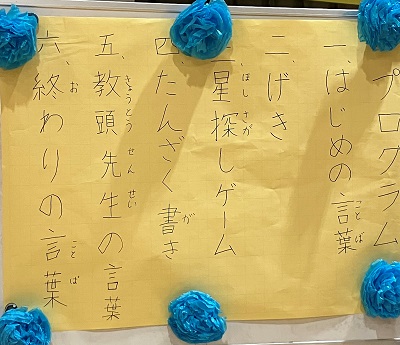 プログラム
一、はじめの言葉
二、げき
三、星探しゲーム
四、たんざく書き
五、教頭先生の言葉
六、終わりの言葉